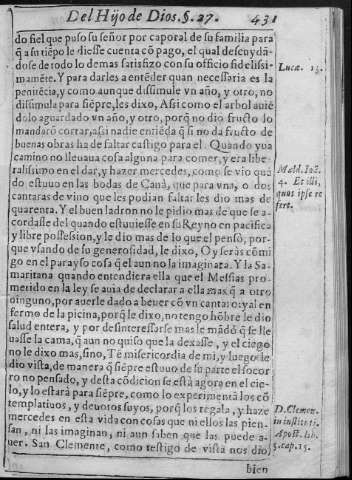 Del Hijo de Dios. §. 27. 431
do fiel que puso su señor por caporal de su familia para
q̃ a su tiẽpo le diesse cuenta cõ pago, el qual desenydã-
dose de todo lo demas satisfizo con su officio fidelissi-
mamẽte. Y para darles a entẽder quan necessaria es la
penitẽcia, y como aunque dissimule vn año, y otro, no
dissimula para siẽpre, les dixo, Assi como el arbol auiẽ
dolo aguardado vn año, y otro, porq̃ no dio fructo lo
mandarõ cortar, assi nadie entiẽda q̃ si no da fructo de
buenas obras ha de faltar castigo para el. Quando yua
camino no lleuaua cosa alguna para comer, y era libe-
ralissimo en el dar, y hazer mercedes, como se vio quã
do estuuo en las bodas de Canà, que para vna, o dos
cantaras de vino que les podian faltar les dio mas de
quarenta. Y el buen ladron no le pidio mas de que se a-
cordasse del quando estuuiesse en su Reyno en pacifica
y libre possession, y le dio mas de lo que el pensò, por-
que vsando de su generosidad, le dixo, Oy seràs cõmi
go en el parayso cosa q̃ el aun no la imaginara. Y la Sa-
maritana quando entendiera ella que el Messias pro-
metido en la ley se auia de declarar a ella mas q̃ a otro
ninguno, por auerle dado a beuer cõ vn cantaro: y al en
fermo de la picina, porq̃ le dixo, no tengo hõbre le dio
salud entera, y por desinteressarse mas le mãdò q̃ se lle
uasse la cama, q̃ aun no quiso que la dexasse, y el ciego
no le dixo mas, sino, Tẽ misericordia de mi, y luego le
dio vista, de manera q̃ siẽpre estuuo de su parte el socor
ro no pensado, y desta cõdicion se està agora en el cie-
lo, y lo estarà para siẽpre, como lo experimentã los cõ
templatiuos, y deuotos suyos, porq̃ los regala, y haze
mercedes en esta vida con cosas que ni ellos las pien-
san, ni las imaginan, ni aun saben que las puede a-
uer. San Clemente, como testigo de vista nos dio,
bien
Lucæ. 13.
4. Et illi,
quos ipse re
fert.
D. Clemen.
in instituti.
Apost. lib.
5. cap. 15.